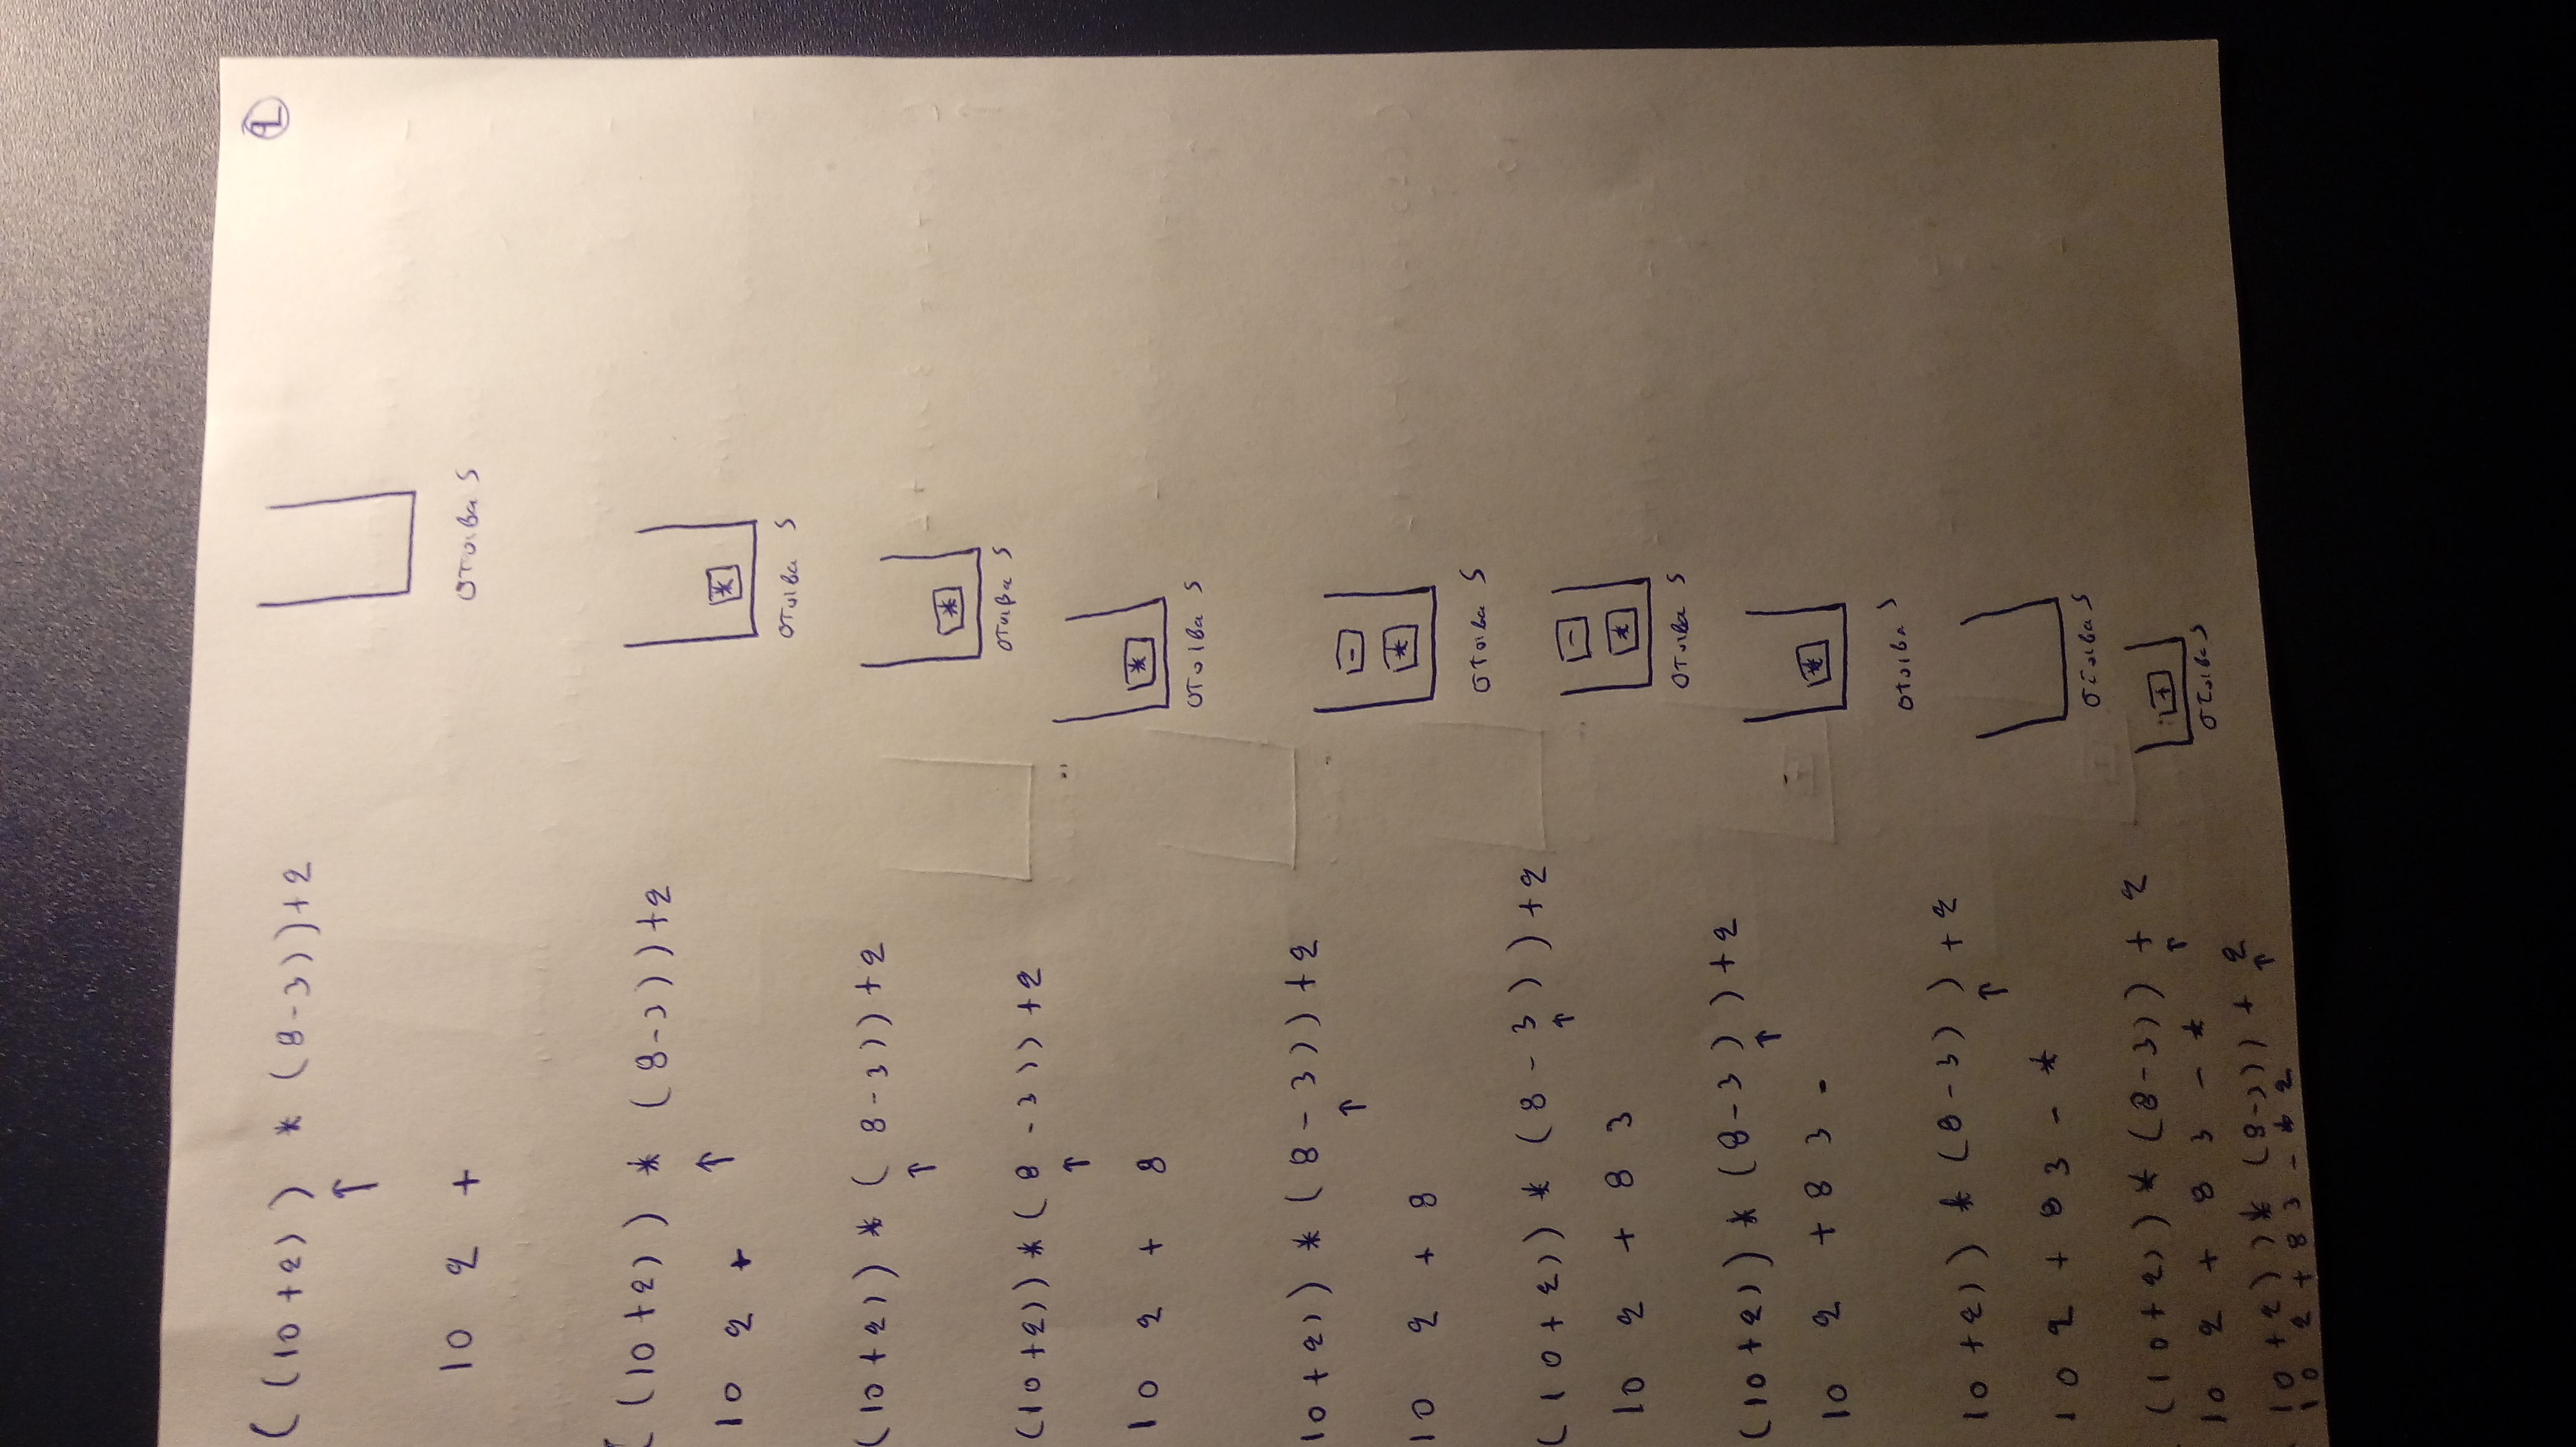 2
((10+2)) * (8-3))+2
↑
10 2 +
στοιβα S
((10+2)) * (8-3))+2
↑
10 2 +
*
στοιβα S
(10+2)) * (8-3))+2
↑
*
στοιβα S
(10+2)) * (8-3))+2
↑
10 2 + 8
*
στοιβα S
10+2)) * (8-3))+2
↑
10 2 + 8
-
*
στοιβα S
(10+2)) * (8-3))+2
↑
10 2 + 8 3
-
*
στοιβα S
(10+2)) * (8-3))+2
↑
10 2 + 8 3 -
*
στοιβα S
10+2)) * (8-3))+2
↑
10 2 + 8 3 - *
στοιβα S
(10+2)) * (8-3)) + 2
↑
10 2 + 8 3 - *
+
στοιβα S
10+2)) * (8-3)) + 2
↑
10 2 + 8 3 - * 2